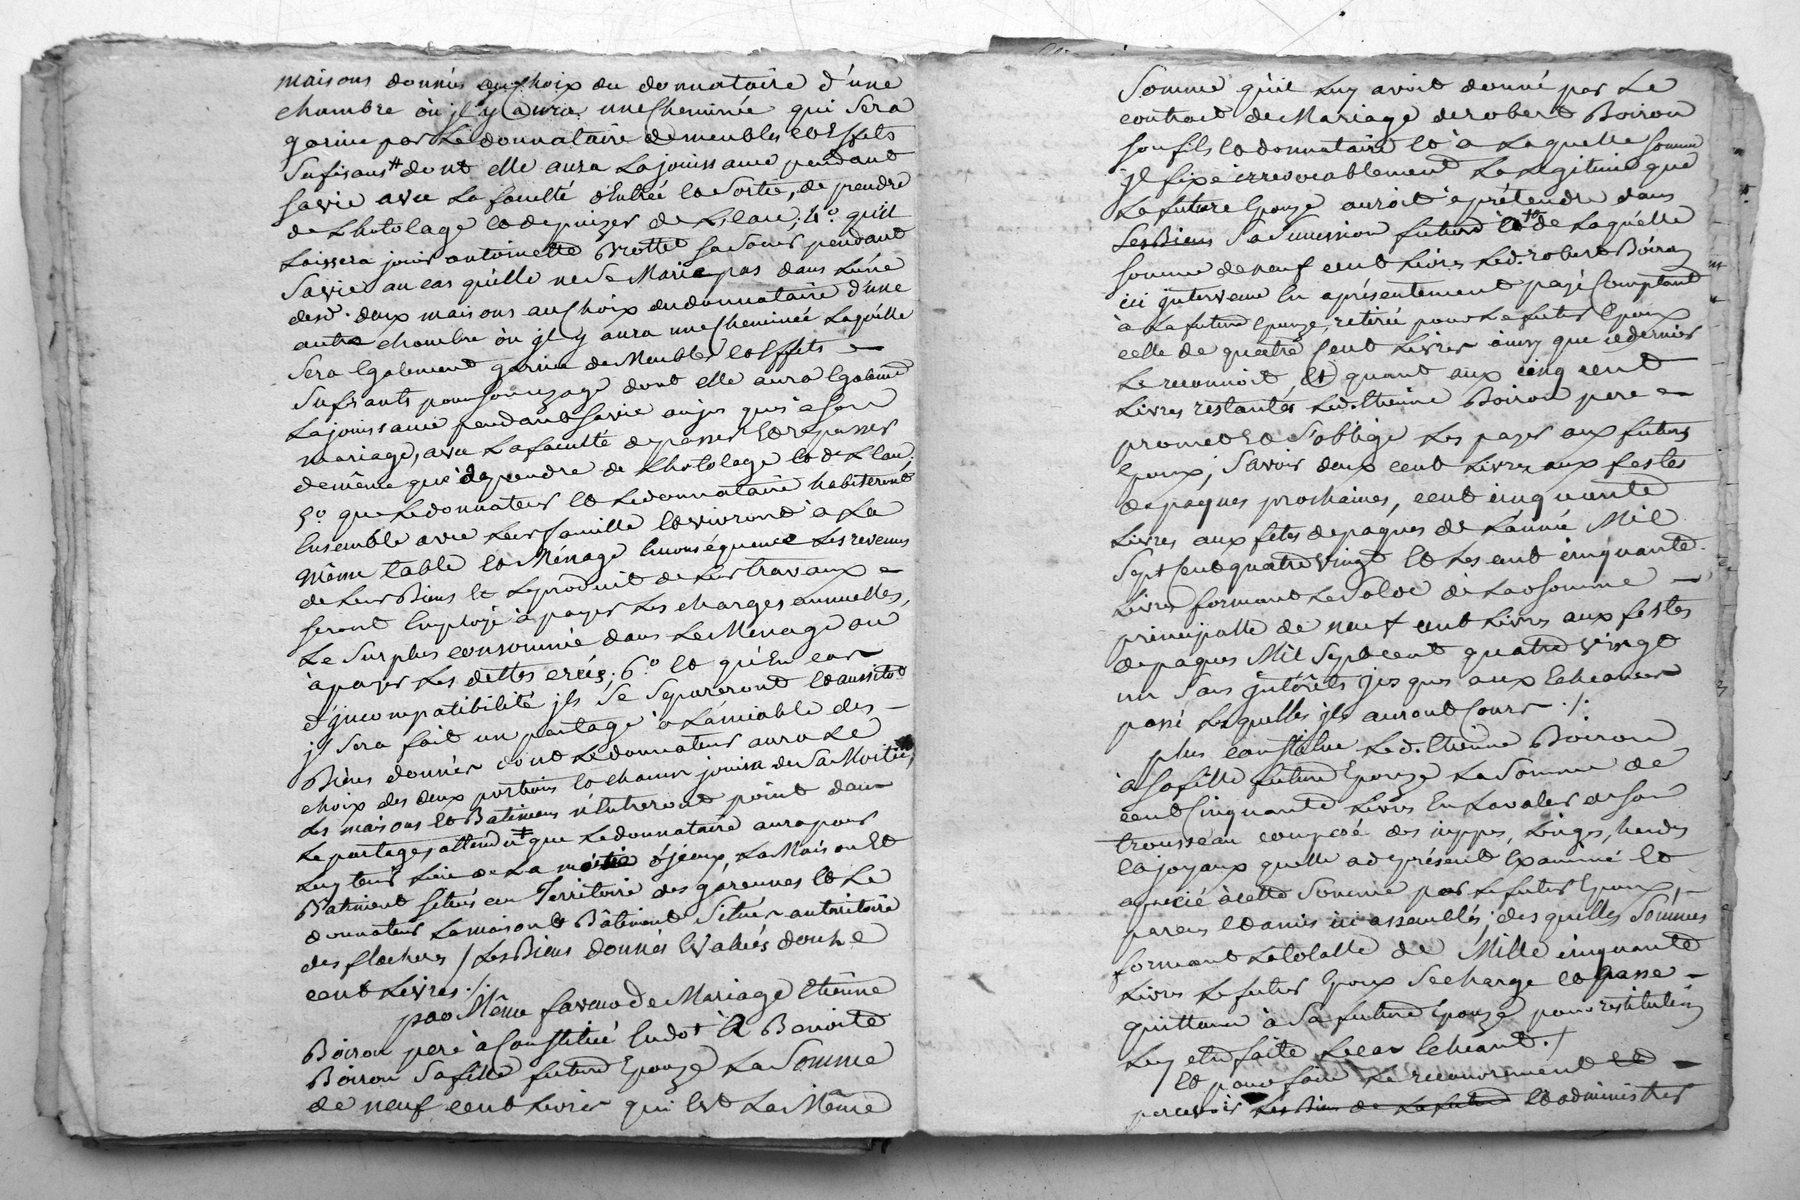 maisons donnés au choix du donnataire d'une
chambre où jl y aura une Cheminée qui sera
garnie par Le donnataire de meubles et Effets
Sufisans dont elle aura La jouissance pendant
sa vie avec La faculté d'Entrée et Sortie, de prendre
de L'hotolage et de puizer de L'eau; 4.º qu'il
Laissera jouir antoinette Brottet sa sœur pendant
Sa vie au cas qu'elle ne se Marie pas dans L'une
desd. deux maisons au Choix du donnataire d'une
autre chambre où jl y aura une Cheminée Laquelle
sera Egalement garnie de Meubles et Effets
Sufisants pour son uzage dont elle aura Egalement
La jouissance pendant sa vie ou jusques à son
mariage, avec La faculté de passer et repasser
de même que de prendre de L'hotolage et de L'eau;
5.º que Le donnateur et Le donnataire habiteront
Ensemble avec Leur famille et vivront à La
même table et Ménage En conséquence Les revenus
de Leurs Biens et Le produit de Leurs travaux
seront Employé à payer Les charges annuelles,
Le Surplus consommé dans Le Ménage ou
à payer Les dettes créés; 6.º et qu'En cas
d'jncompatibilité jls se separeront et aussitot
jl sera fait un partage à L'amiable des
Biens donnés dont Le donnateur aura Le
choix des deux portions et chacun jouira de Sa Moitié,
Les maisons et Batimens n'Entreront point dans
Le partage, attendu que Le donnataire aura pour
Luy tenir Lieu de La moitié d'jceux, La Maison et
Batiment situés au Territoire des garennes et Le
donnateur La maison et Bâtiment Situés au territoire
des flaches / Les Biens donnés Evalués douze
cent Livres ./.
par Même faveur de Mariage Etienne
Boiron pere à Constitué En dot à Benoite
Boiron Sa fille future Epouze La Somme
de neuf cent Livres qui Est La Même
Somme qu'il Luy avoit donné par Le
contrat de Mariage de robert Boiron
son fils et donnataire et à Laquelle somme
jl fixe irrevocablement La Legitime que
La future Epouze auroit à prétendre dans
Les Biens Sa Succession future et de Laquelle
somme de neuf cent Livres Led. robert Boiron
ici jntervenu En a présentement payé Comptant
à La future Epouze, retirée pour Le futur Epoux
celle de quatre Cent Livres ainsy que ce dernier
Le reconnoit, Et quant aux cinq cent
Livres restantes Led. Etienne Boiron pere
promet et s'oblige Les payer aux futurs
Epoux, Savoir deux cent Livres aux festes
de paques prochaines, cent cinquante
Livres aux fêtes de paques de L'année Mil
Sept Cent quatre Vingt et Les cent cinquante
Livres formant Le Solde de Lad. somme
principalle de neuf cent Livres aux festes
de paques Mil Sept cent quatre vingt
un Sans jntérêts jusques aux Echeances
passé Lesquelles jls auront Cours ./.
plus constitue Led. Etienne Boiron
à Sa fille future Epouze La Somme de
cent Cinquante Livres En La valeur de son
trousseau composé des nippes, Linges, hardes
et joyaux qu'elle a de présent Examiné et
aprecié à cette Somme par Le futur Epoux,
parens et amis ici assemblés; desquelles Sommes
formant La totalle de Mille cinquante
Livres Le futur Epoux Se charge et passe
quittance à Sa future Epouze pour restitution
Luy etre faite Le cas Echéant ./
Et pour faire Le recouvrement et
percevoir Les Biens de La future et administrer